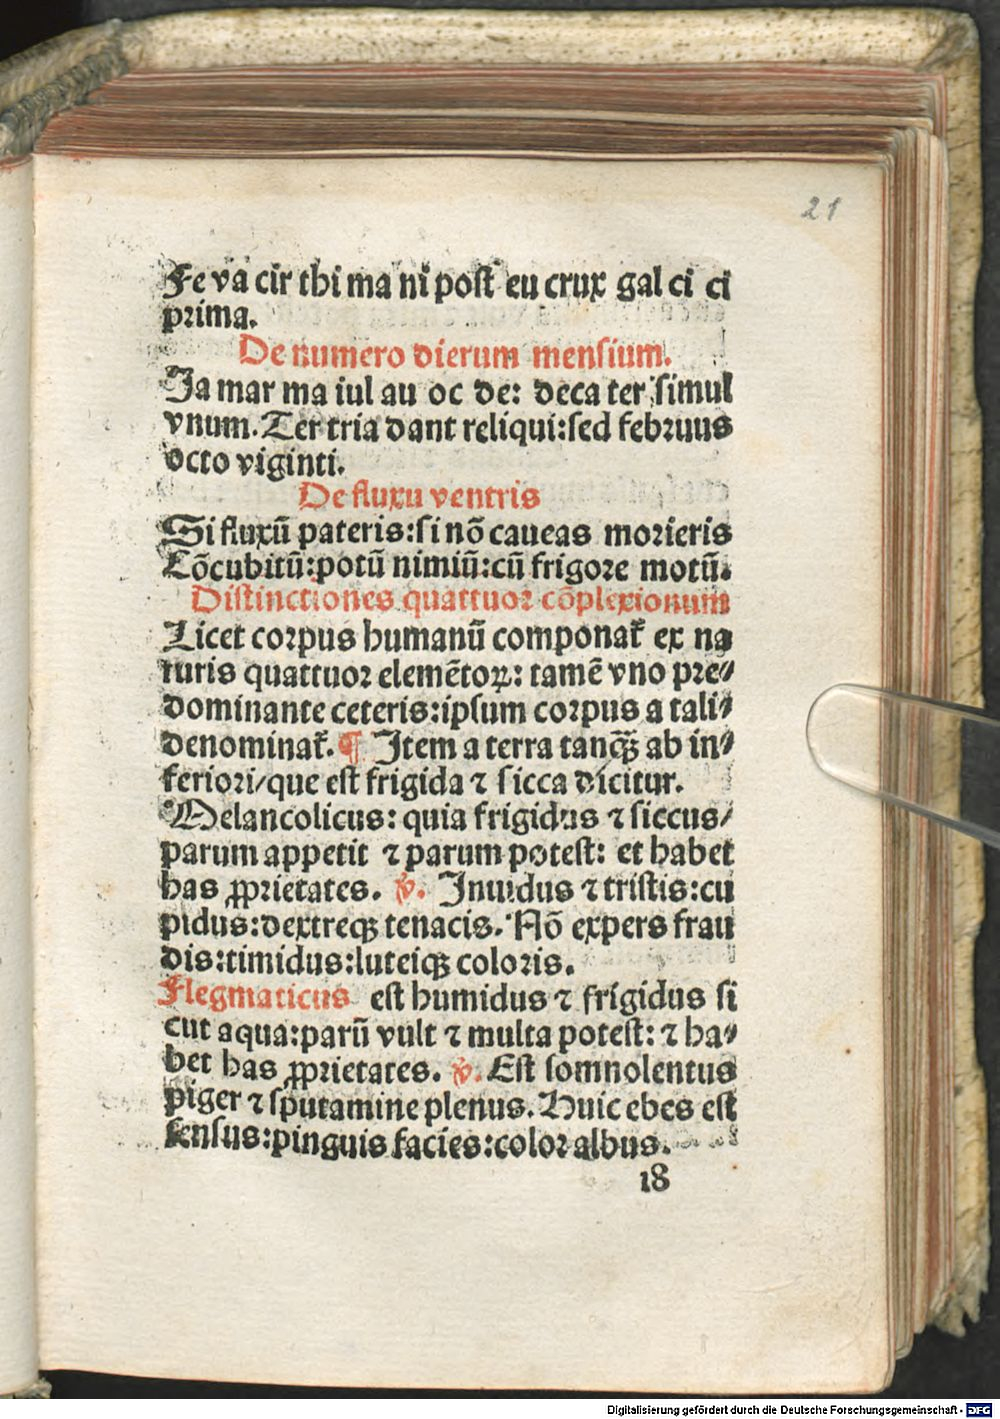 21
Fe va cir thi ma ni post eu crux gal ci ci
prima.
De numero dierum mensium.
Ja mar ma iul au oc de: deca ter simul
vnum. Ter tria dant reliqui:sed februus
octo viginti.
De fluxu ventris
Si fluxū pateris:si nō caueas morieris
Cōcubitū:potū nimiū:cū frigore motū.
Distinctiones quattuor cōplexionum
Licet corpus humanū componat᷑ ex na
turis quattuor elemētoꝝ: tamē vno pre⸗
dominante ceteris:ipsum corpus a tali⸗
denominat᷑. ¶ Item a terra tanq̄ꝫ ab in⸗
feriori/que est frigida ⁊ sicca dicitur.
Melancolicus: quia frigidus ⁊ siccus/
parum appetit ⁊ parum potest: et habet
has ꝓprietates. ℣. Inuidus ⁊ tristis:cu
pidus:dextreqꝫ tenacis. Nō expers frau
dis:timidus:luteiqꝫ coloris.
Flegmaticus est humidus ⁊ frigidus si
cut aqua:parū vult ⁊ multa potest: ⁊ ha⸗
bet has ꝓprietates. ℣. Est somnolentus
piger ⁊ sputamine plenus. Huic ebes est
sensus:pinguis facies:color albus.
18
Digitalisierung gefördert durch die Deutsche Forschungsgemeinschaft - DFG